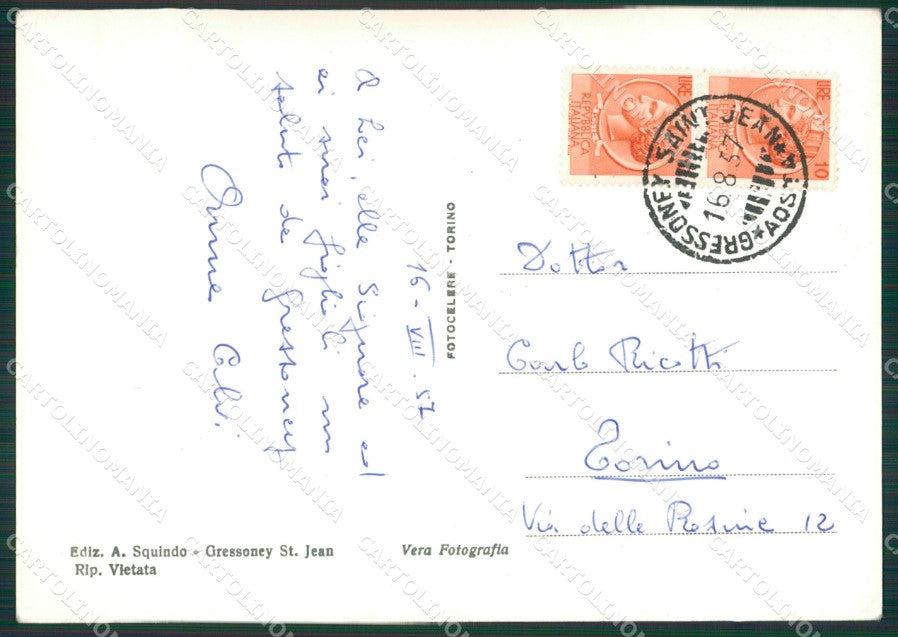 16-VIII.57
A Lei, alla Signora ed
ai suoi figlioli un
saluto da Gressoney
Calvi
FOTOCELERE - TORINO
LIRE
REPUBBLICA
ITALIANA
LIRE 10
GRESSONEY SAINT JEAN * AOSTA *
16 8 57
Dottor
Carlo Ricotti
Torino
Via delle Rosine 12
Ediz. A. Squindo - Gressoney St. Jean
Rip. Vietata
Vera Fotografia
CARTOLINOMANIA